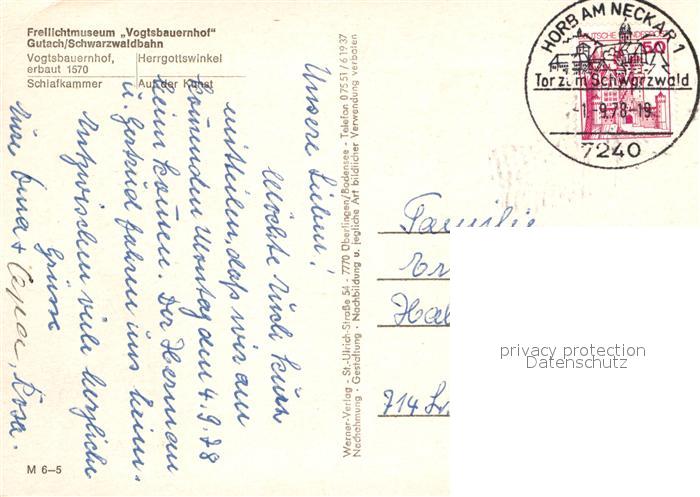 Freilichtmuseum „Vogtsbauernhof"
Gutach/Schwarzwaldbahn
Vogtsbauernhof, erbaut 1570
Herrgottswinkel
Schlafkammer
Auf der Kunst
Unsere Lieben!
Möchte Euch kurz
mitteilen, daß wir am
kommenden Montag den 4.9.78
heim kommen. Der Herman
u. Gertrud fahren uns heim.
Inzwischen viele herzliche
Grüsse
Eure Oma + Opa, Rosa.
M 6–5
Werner-Verlag - St.-Ulrich-Straße 54 - 7770 Überlingen/Bodensee - Telefon 07551/61937
Nachahmung · Gestaltung · Nachbildung u. jegliche Art bildlicher Verwendung verboten
HORB AM NECKAR 1
Tor zum Schwarzwald
-1.-9.78-19
7240
DEUTSCHE BUNDESPOST
50
Familie
714
privacy protection
Datenschutz